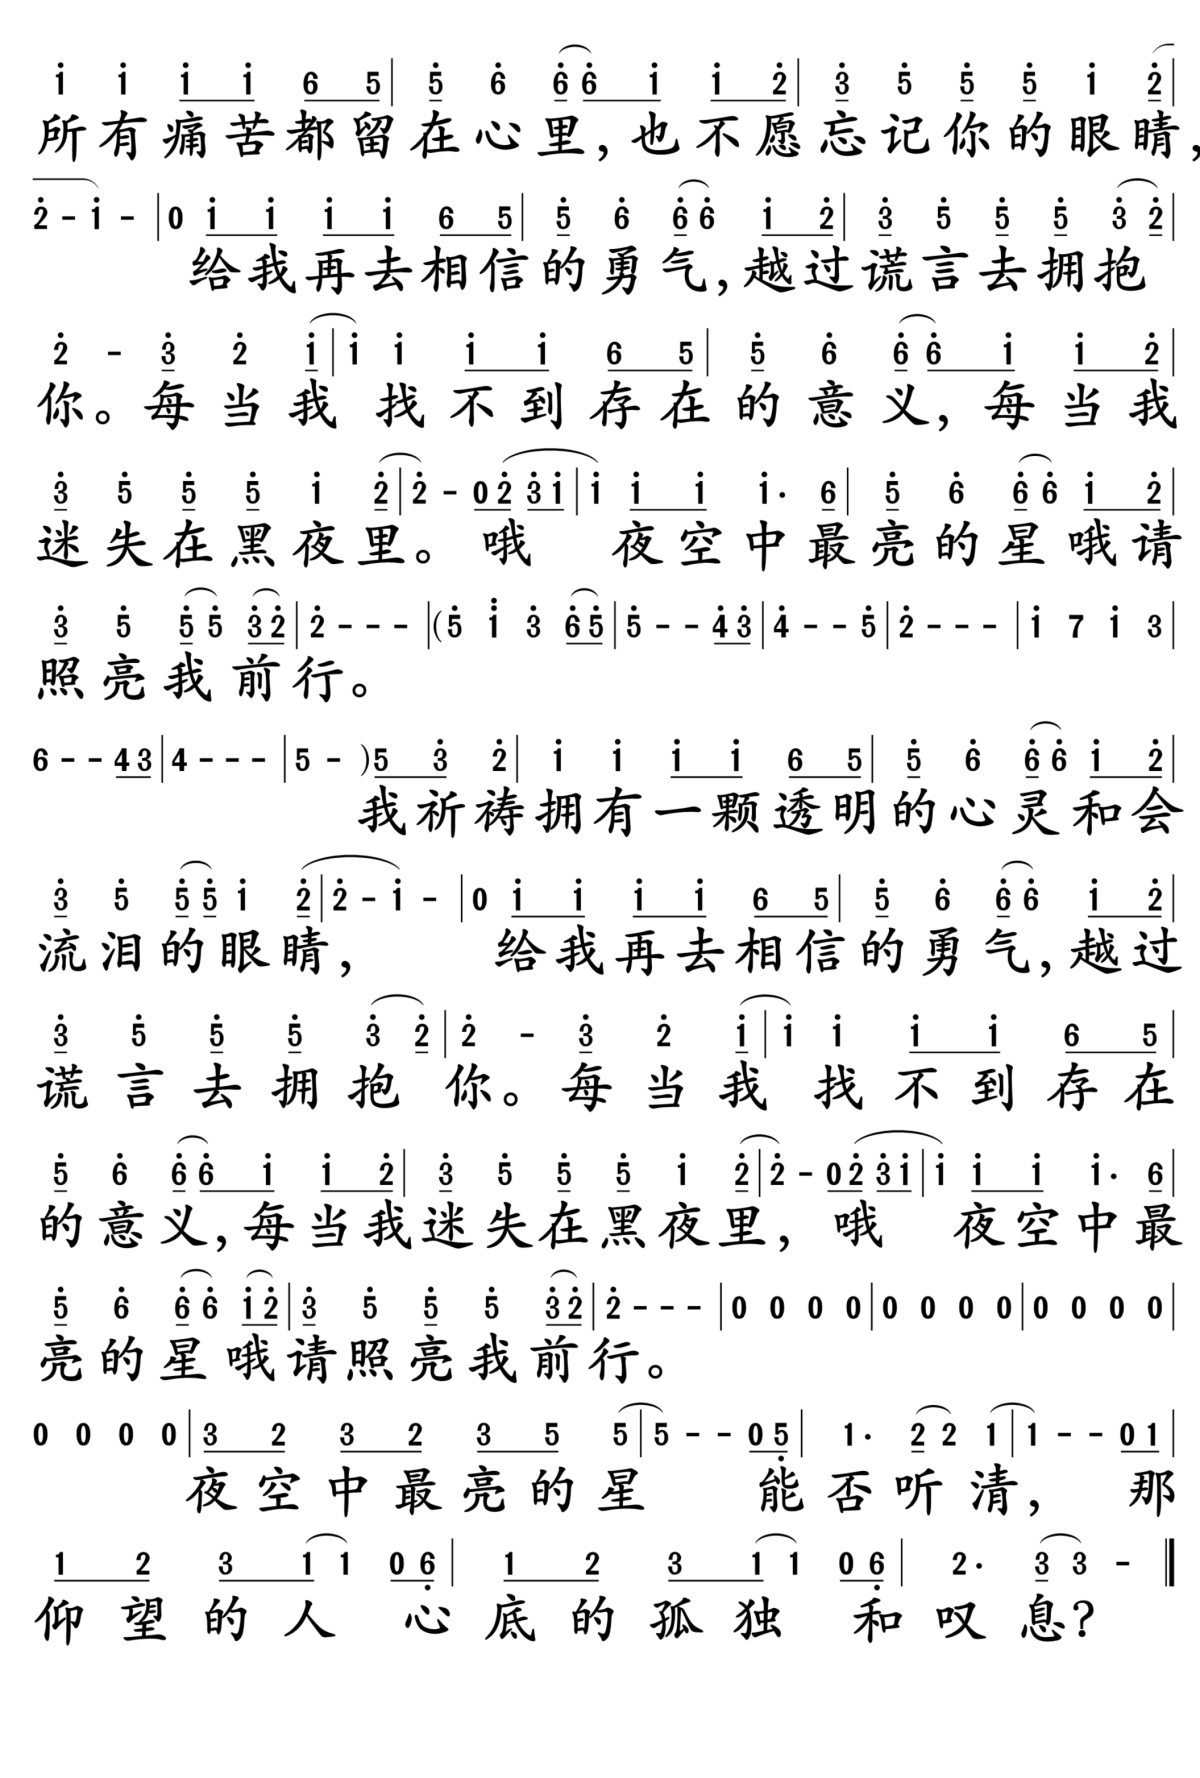 1 1 1 1 6 5 | 5 6 6 6 1 1 2 | 3 5 5 5 1 2 |
所有痛苦都留在心里,也不愿忘记你的眼睛,
2 - 1 - | 0 1 1 1 1 6 5 | 5 6 6 6 1 2 | 3 5 5 5 3 2 |
给我再去相信的勇气,越过谎言去拥抱
2 - 3 2 1 | 1 1 1 1 6 5 | 5 6 6 6 1 1 2 |
你。每当我找不到存在的意义,每当我
3 5 5 5 1 2 | 2 - 0 2 3 1 | 1 1 1 1· 6 | 5 6 6 6 1 2 |
迷失在黑夜里。哦 夜空中最亮的星哦请
3 5 5 5 3 2 | 2 - - - | (5 1 3 6 5 | 5 - - 4 3 | 4 - - 5 | 2 - - - | 1 7 1 3 |
照亮我前行。
6 - - 4 3 | 4 - - - | 5 - ) 5 3 2 | 1 1 1 1 6 5 | 5 6 6 6 1 2 |
我祈祷拥有一颗透明的心灵和会
3 5 5 5 1 2 | 2 - 1 - | 0 1 1 1 1 6 5 | 5 6 6 6 1 2 |
流泪的眼睛, 给我再去相信的勇气,越过
3 5 5 5 3 2 | 2 - 3 2 1 | 1 1 1 1 6 5 |
谎言去拥抱你。每当我找不到存在
5 6 6 6 1 1 2 | 3 5 5 5 1 2 | 2 - 0 2 3 1 | 1 1 1 1· 6 |
的意义,每当我迷失在黑夜里, 哦 夜空中最
5 6 6 6 1 2 | 3 5 5 5 3 2 | 2 - - - | 0 0 0 0 | 0 0 0 0 | 0 0 0 0 |
亮的星哦请照亮我前行。
0 0 0 0 | 3 2 3 2 3 5 5 | 5 - - 0 5 | 1· 2 2 1 | 1 - - 0 1 |
夜空中最亮的星 能否听清, 那
1 2 3 1 1 0 6 | 1 2 3 1 1 0 6 | 2· 3 3 - ‖
仰望的人 心底的孤独 和叹息?